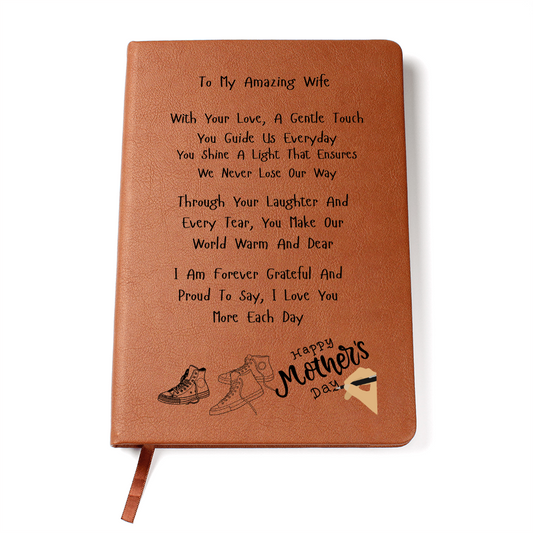 To My Amazing Wife
With Your Love, A Gentle Touch
You Guide Us Everyday
You Shine A Light That Ensures
We Never Lose Our Way
Through Your Laughter And
Every Tear, You Make Our
World Warm And Dear
I Am Forever Grateful And
Proud To Say, I Love You
More Each Day
Happy
Mother's
Day